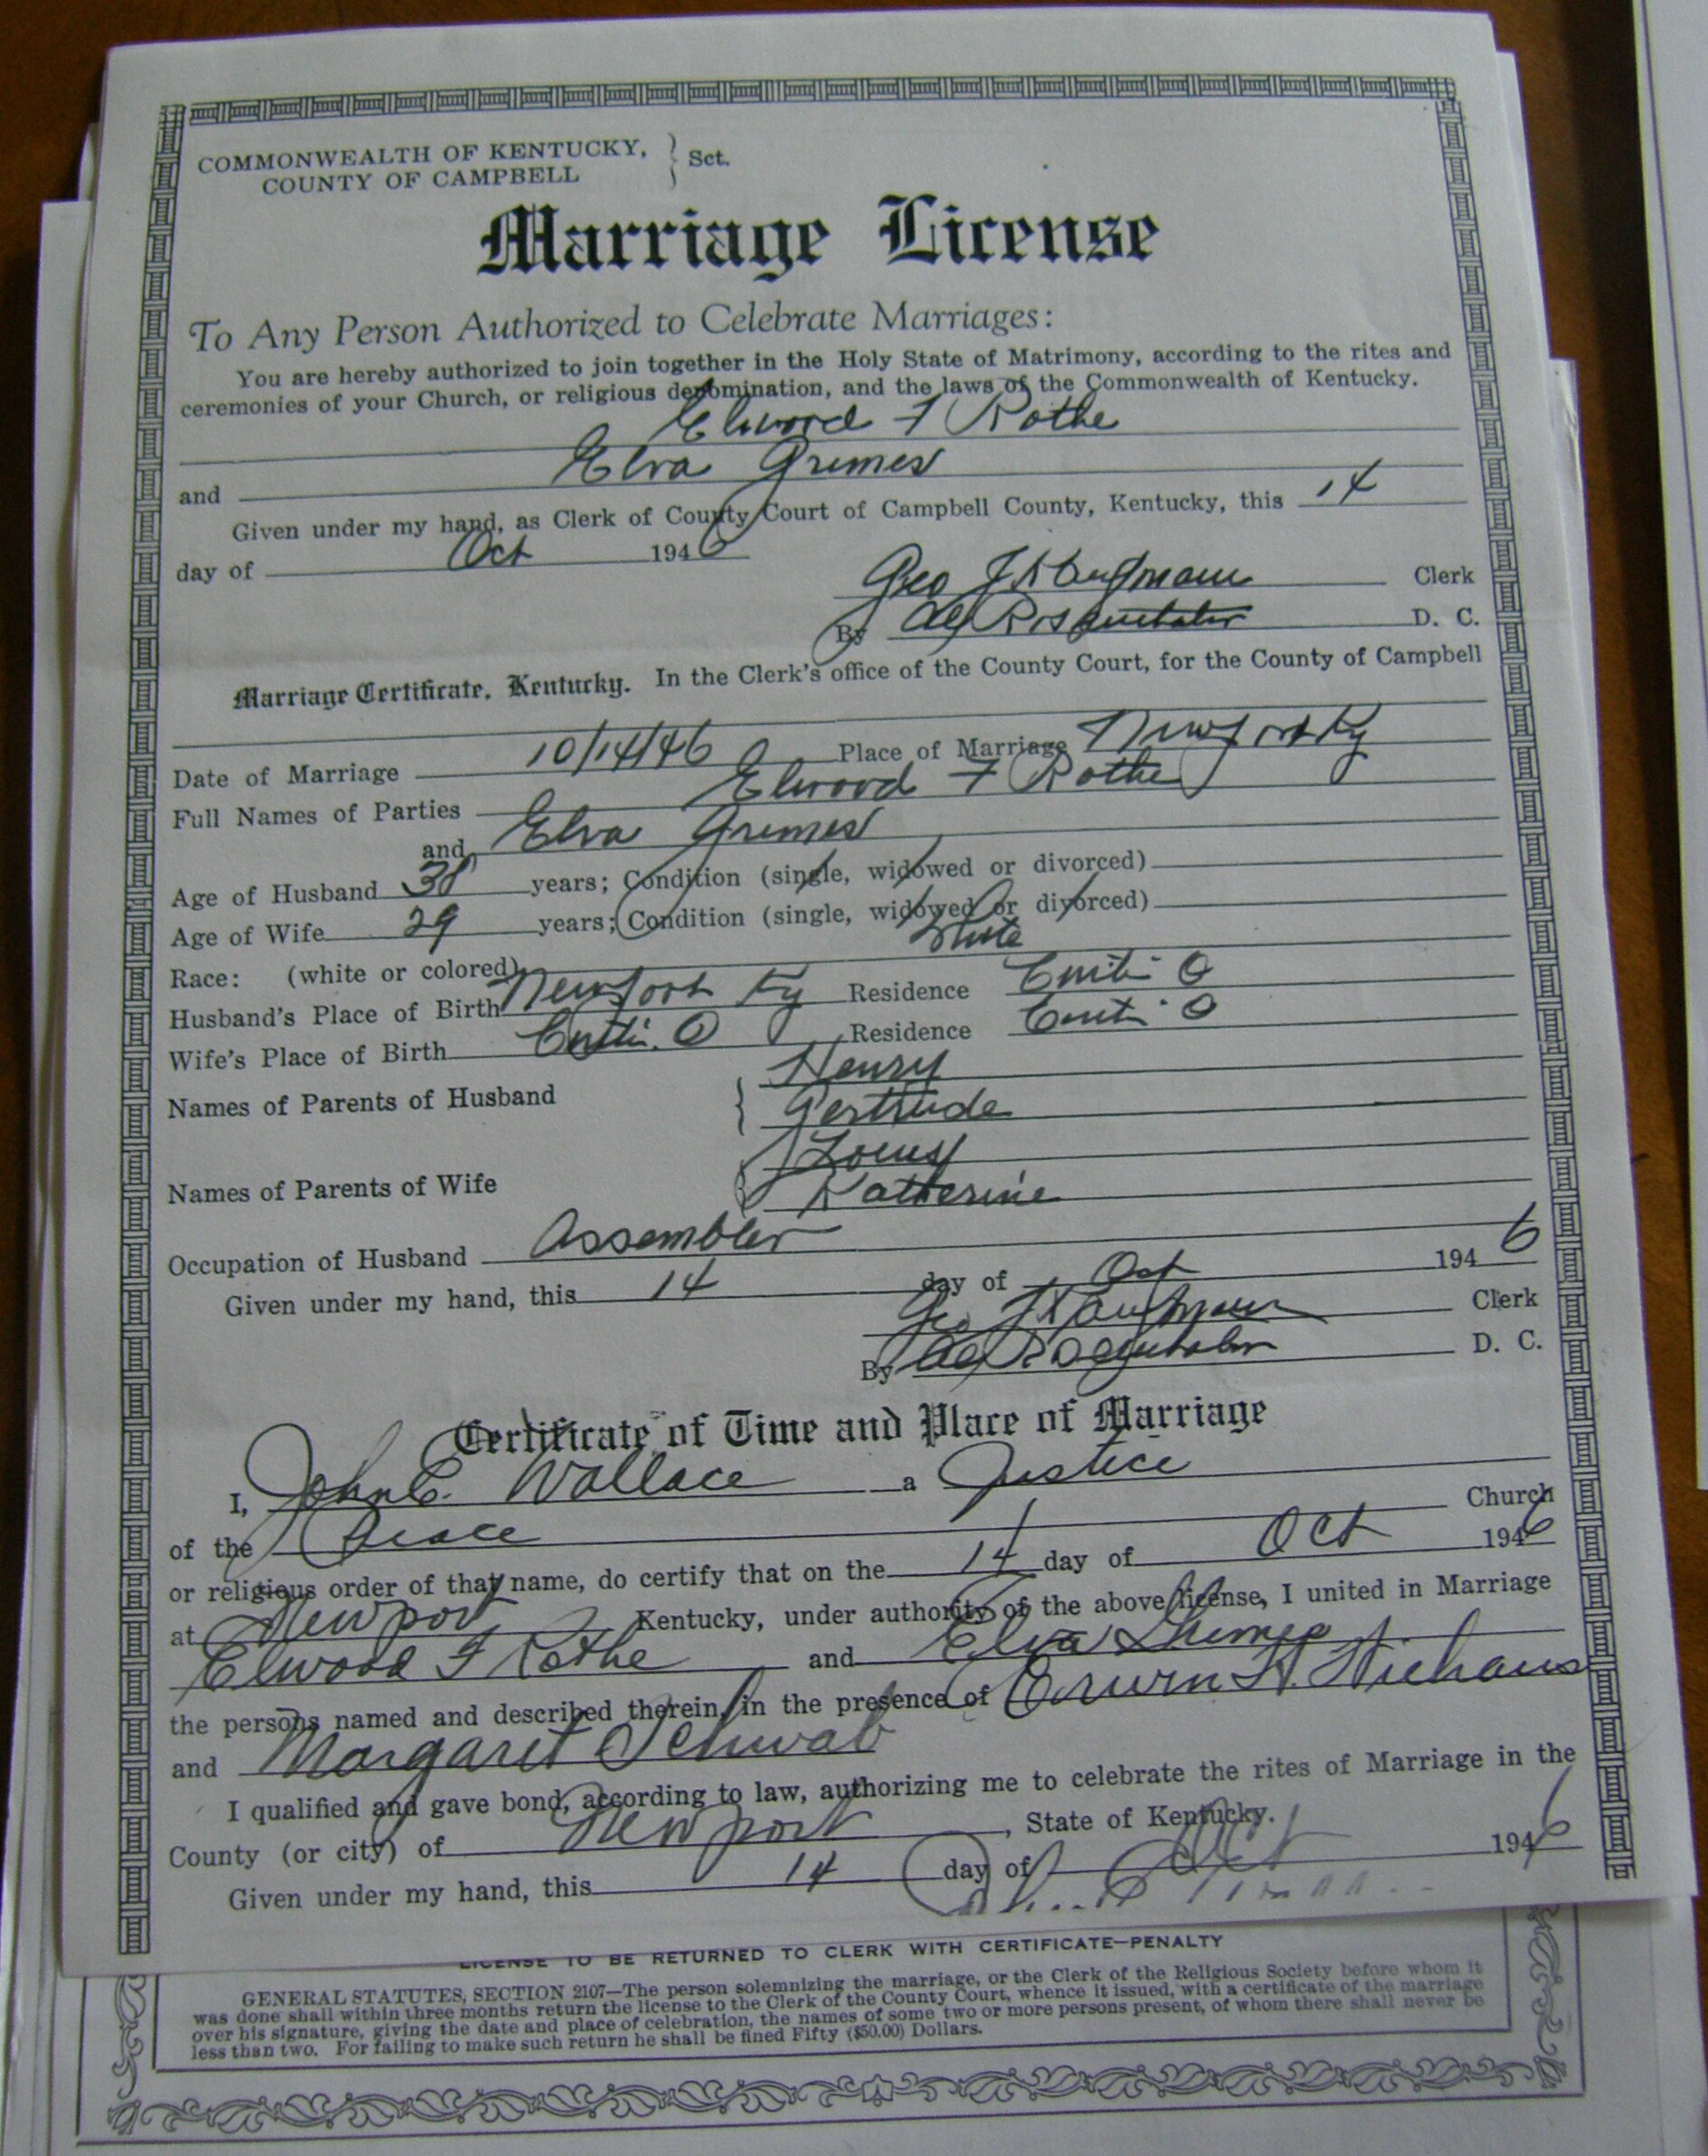 COMMONWEALTH OF KENTUCKY, } Sct.
COUNTY OF CAMPBELL
Marriage License
To Any Person Authorized to Celebrate Marriages:
You are hereby authorized to join together in the Holy State of Matrimony, according to the rites and
ceremonies of your Church, or religious denomination, and the laws of the Commonwealth of Kentucky.
Elwood F Rothe
and Elva Grimes
Given under my hand, as Clerk of County Court of Campbell County, Kentucky, this 14
day of Oct 1946
Geo J Kaufmann Clerk
By D. C.
Marriage Certificate, Kentucky. In the Clerk's office of the County Court, for the County of Campbell
Date of Marriage 10/14/46 Place of Marriage Newport Ky
Full Names of Parties Elwood F Rothe
and Elva Grimes
Age of Husband 38 years; Condition (single, widowed or divorced)
Age of Wife 29 years; Condition (single, widowed or divorced)
Race: (white or colored) White
Husband's Place of Birth Newport Ky Residence Cinti O
Wife's Place of Birth Cinti. O Residence Cinti O
Names of Parents of Husband { Henry
Gertrude
Names of Parents of Wife { Louis
Katherine
Occupation of Husband Assembler
Given under my hand, this 14 day of Oct 1946
Geo J Kaufmann Clerk
By D. C.
Certificate of Time and Place of Marriage
I, John C. Wallace a Justice
of the Peace Church
or religious order of that name, do certify that on the 14 day of Oct 1946
at Newport Kentucky, under authority of the above license, I united in Marriage
Elwood F Rothe and Elva Grimes
the persons named and described therein, in the presence of Erwin H. Niehaus
and Margaret Schwab
I qualified and gave bond, according to law, authorizing me to celebrate the rites of Marriage in the
County (or city) of Newport, State of Kentucky.
Given under my hand, this 14 day of Oct 1946
LICENSE TO BE RETURNED TO CLERK WITH CERTIFICATE—PENALTY
GENERAL STATUTES, SECTION 2107—The person solemnizing the marriage, or the Clerk of the Religious Society before whom it
was done shall within three months return the license to the Clerk of the County Court, whence it issued, with a certificate of the marriage
over his signature, giving the date and place of celebration, the names of some two or more persons present, of whom there shall never be
less than two. For failing to make such return he shall be fined Fifty ($50.00) Dollars.